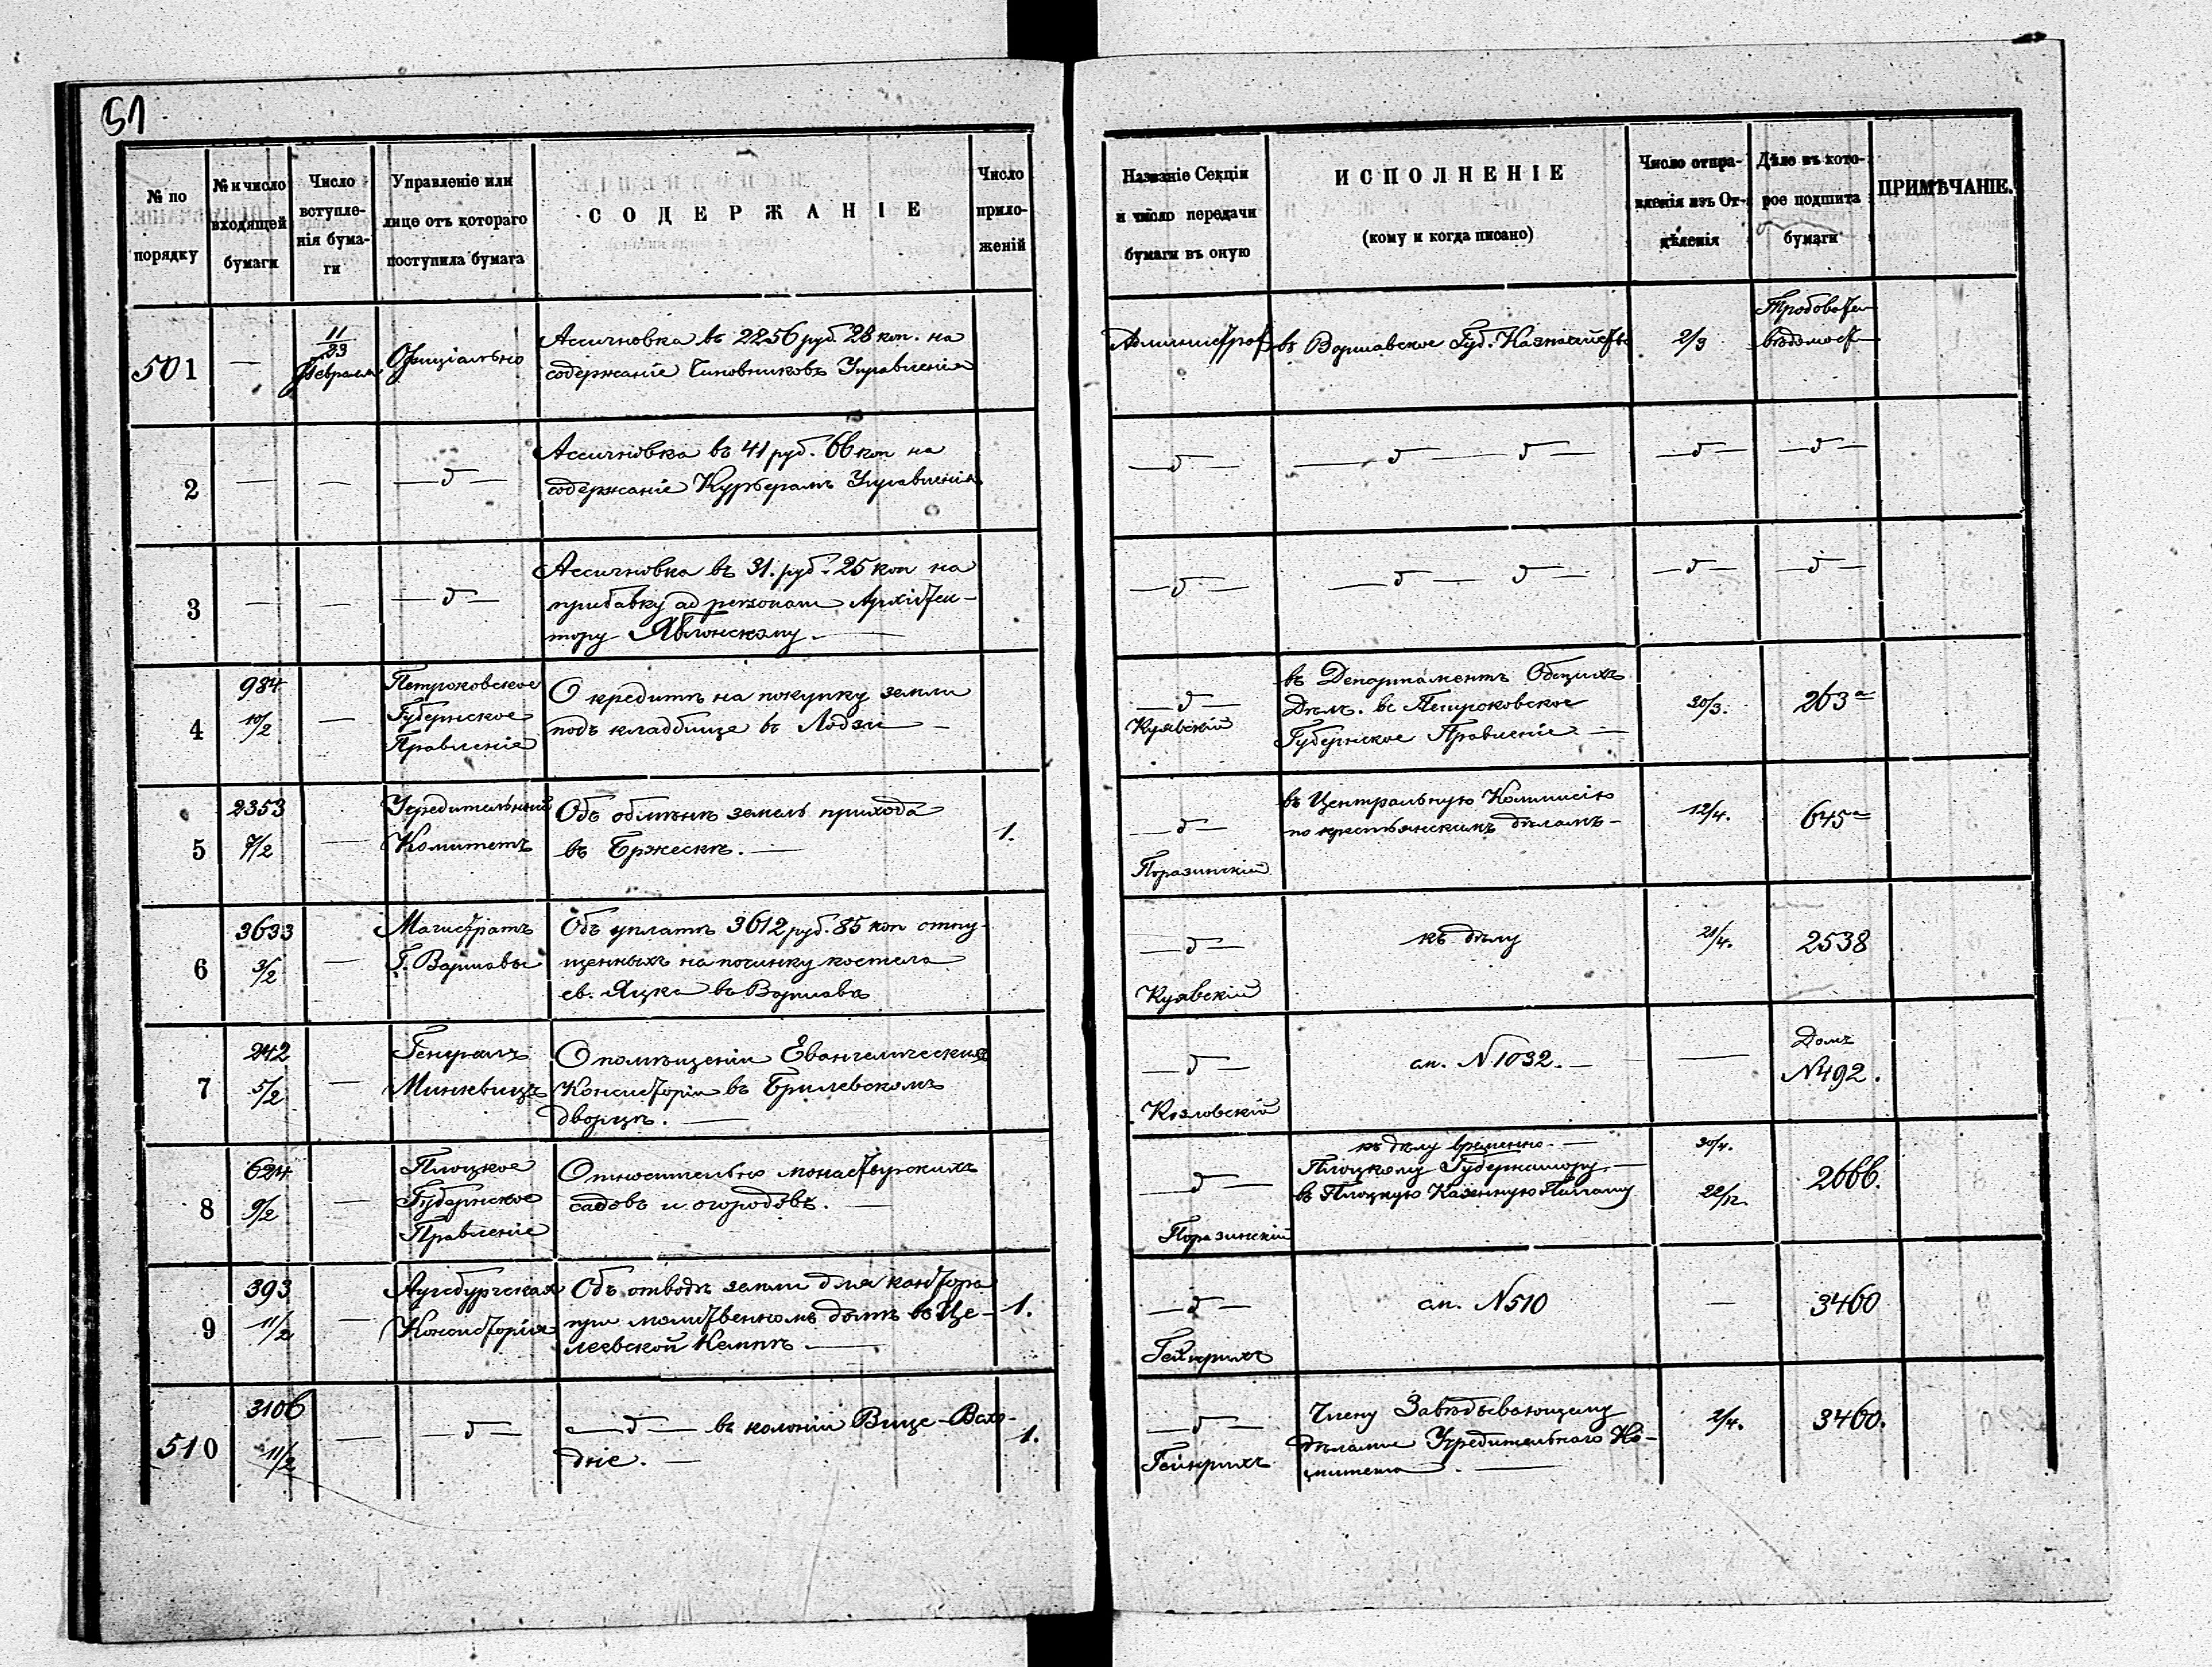 51
№ по порядку
№ и число входящей бумаги
Число вступле-нія бума-ги
Управленіе или лице отъ котораго поступила бумага
СОДЕРЖАНІЕ
Число прило-женій
Названіе Секціи и число передачи бумаги въ оную
ИСПОЛНЕНІЕ
(кому и когда писано)
Число отпра-вленія изъ От-дѣленія
Дѣло въ кото-рое подшита бумаги
ПРИМѢЧАНІЕ.
501
—
11/23 Февраля
Офиціально
Ассигновка въ 2256 руб. 28 коп. на
содержаніе Чиновниковъ Управленія
въ Варшавское Губ. Казначейство
2/3
2
—
—
— д —
Ассигновка въ 41 руб. 66 коп на
содержаніе Курьерамъ Управленія
— д —
— д — д —
— д —
— д —
3
—
—
— д —
Ассигновка въ 31. руб. 25 коп на
прибавку ad personam Архитек-
тору Яблонскому. —
— д —
— д — д —
— д —
— д —
4
984
10/2
—
Петроковское
Губернское
Правленіе
О кредитѣ на покупку земли
подъ кладбище въ Лодзи —
— д —
Куявскій
въ Департаментъ Общихъ
Дѣлъ. въ Петроковское
Губернское Правленіе —
20/3.
263а
5
2353
7/2
—
Учредительный
Комитетъ
Объ обмѣнѣ земель прихода
въ Бржескѣ. —
1.
— д —
Поразинскій
въ Центральную Коммисію
по крестьянскимъ дѣламъ —
12/4.
645а
6
3633
3/2
—
Магистратъ
Г. Варшавы
Объ уплатѣ 3612 руб. 85 коп отпу-
щенныхъ на починку костела
св. Яцка въ Варшавѣ
— д —
Куявскій
къ дѣлу
21/4.
2538
7
242
5/2
—
Генералъ
Минквицъ
О помѣщеніи Евангелическихъ
Консисторіи въ Брилевскомъ
дворцѣ. —
— д —
Козловскій
см. N 1032. —
—
Домъ
N 492.
8
624
9/2
—
Плоцкое
Губернское
Правленіе
Относительно монастырскихъ
садовъ и огородовъ. —
— д —
Поразинскій
къ дѣлу временно. —
Плоцкому Губернатору. —
въ Плоцкую Казенную Палату
30/4.
22/12.
2666.
9
393
11/2
—
Аугсбургская
Консисторія
Объ отводѣ земли для кантора
при молитвенномъ домѣ въ Це-
леевской Кемпѣ. —
1.
— д —
Гейнрихъ
см. N 510
—
3460
510
3106
11/2
—
— д —
— д — въ колоніи
1.
— д —
Гейнрихъ
Члену Завѣдывающему
дѣлами Учредительнаго Ко-
митета. —
2/4.
3460.